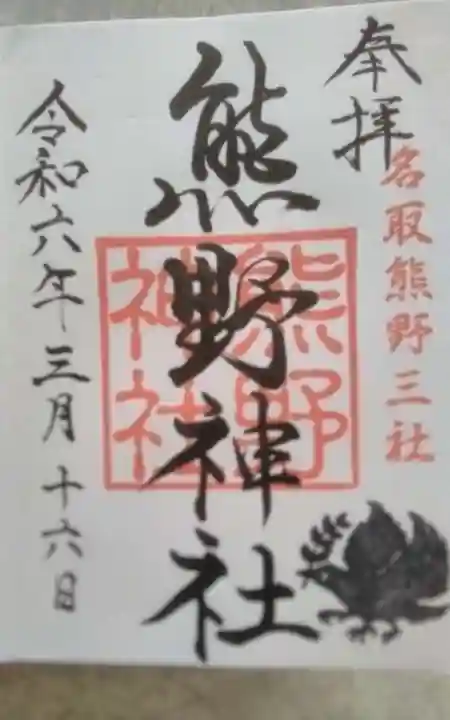 奉拝
名取熊野三社
熊野神社
熊野
神社
令和六年三月十六日